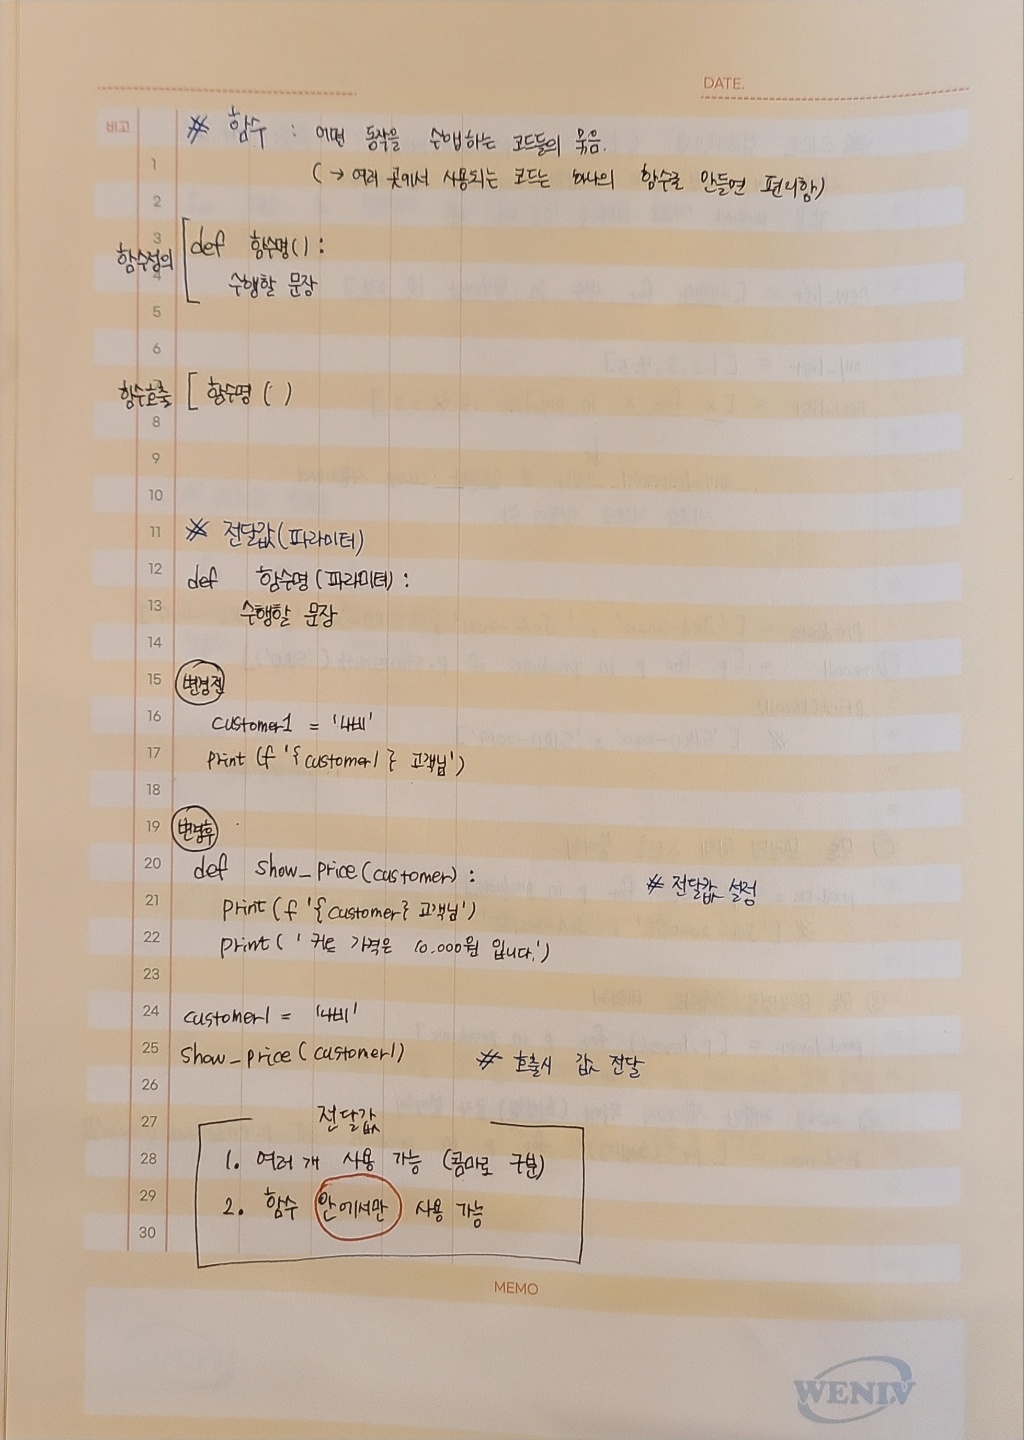 DATE.
비고
# 함수 : 어떤 동작을 수행하는 코드들의 묶음.
1 (→ 여러 곳에서 사용되는 코드는 하나의 함수로 만들면 편리함)
2
3 def 함수명() :
함수정의
4 수행할 문장
5
6
함수호출 [ 함수명 ( )
8
9
10
11 # 전달값(파라미터)
12 def 함수명 (파라미터) :
13 수행할 문장
14
15 변경전
16 customer1 = '나비'
17 print (f '{customer1} 고객님')
18
19 변경후
20 def show_price(customer) : # 전달값 설정
21 print(f '{customer} 고객님')
22 print( ' 커트 가격은 10.000원 입니다.')
23
24 customer1 = '나비'
25 show_price(customer1) # 호출시 값 전달
26
27 전달값
28 1. 여러 개 사용 가능 (콤마로 구분)
29 2. 함수 안에서만 사용 가능
30
MEMO
WENIV